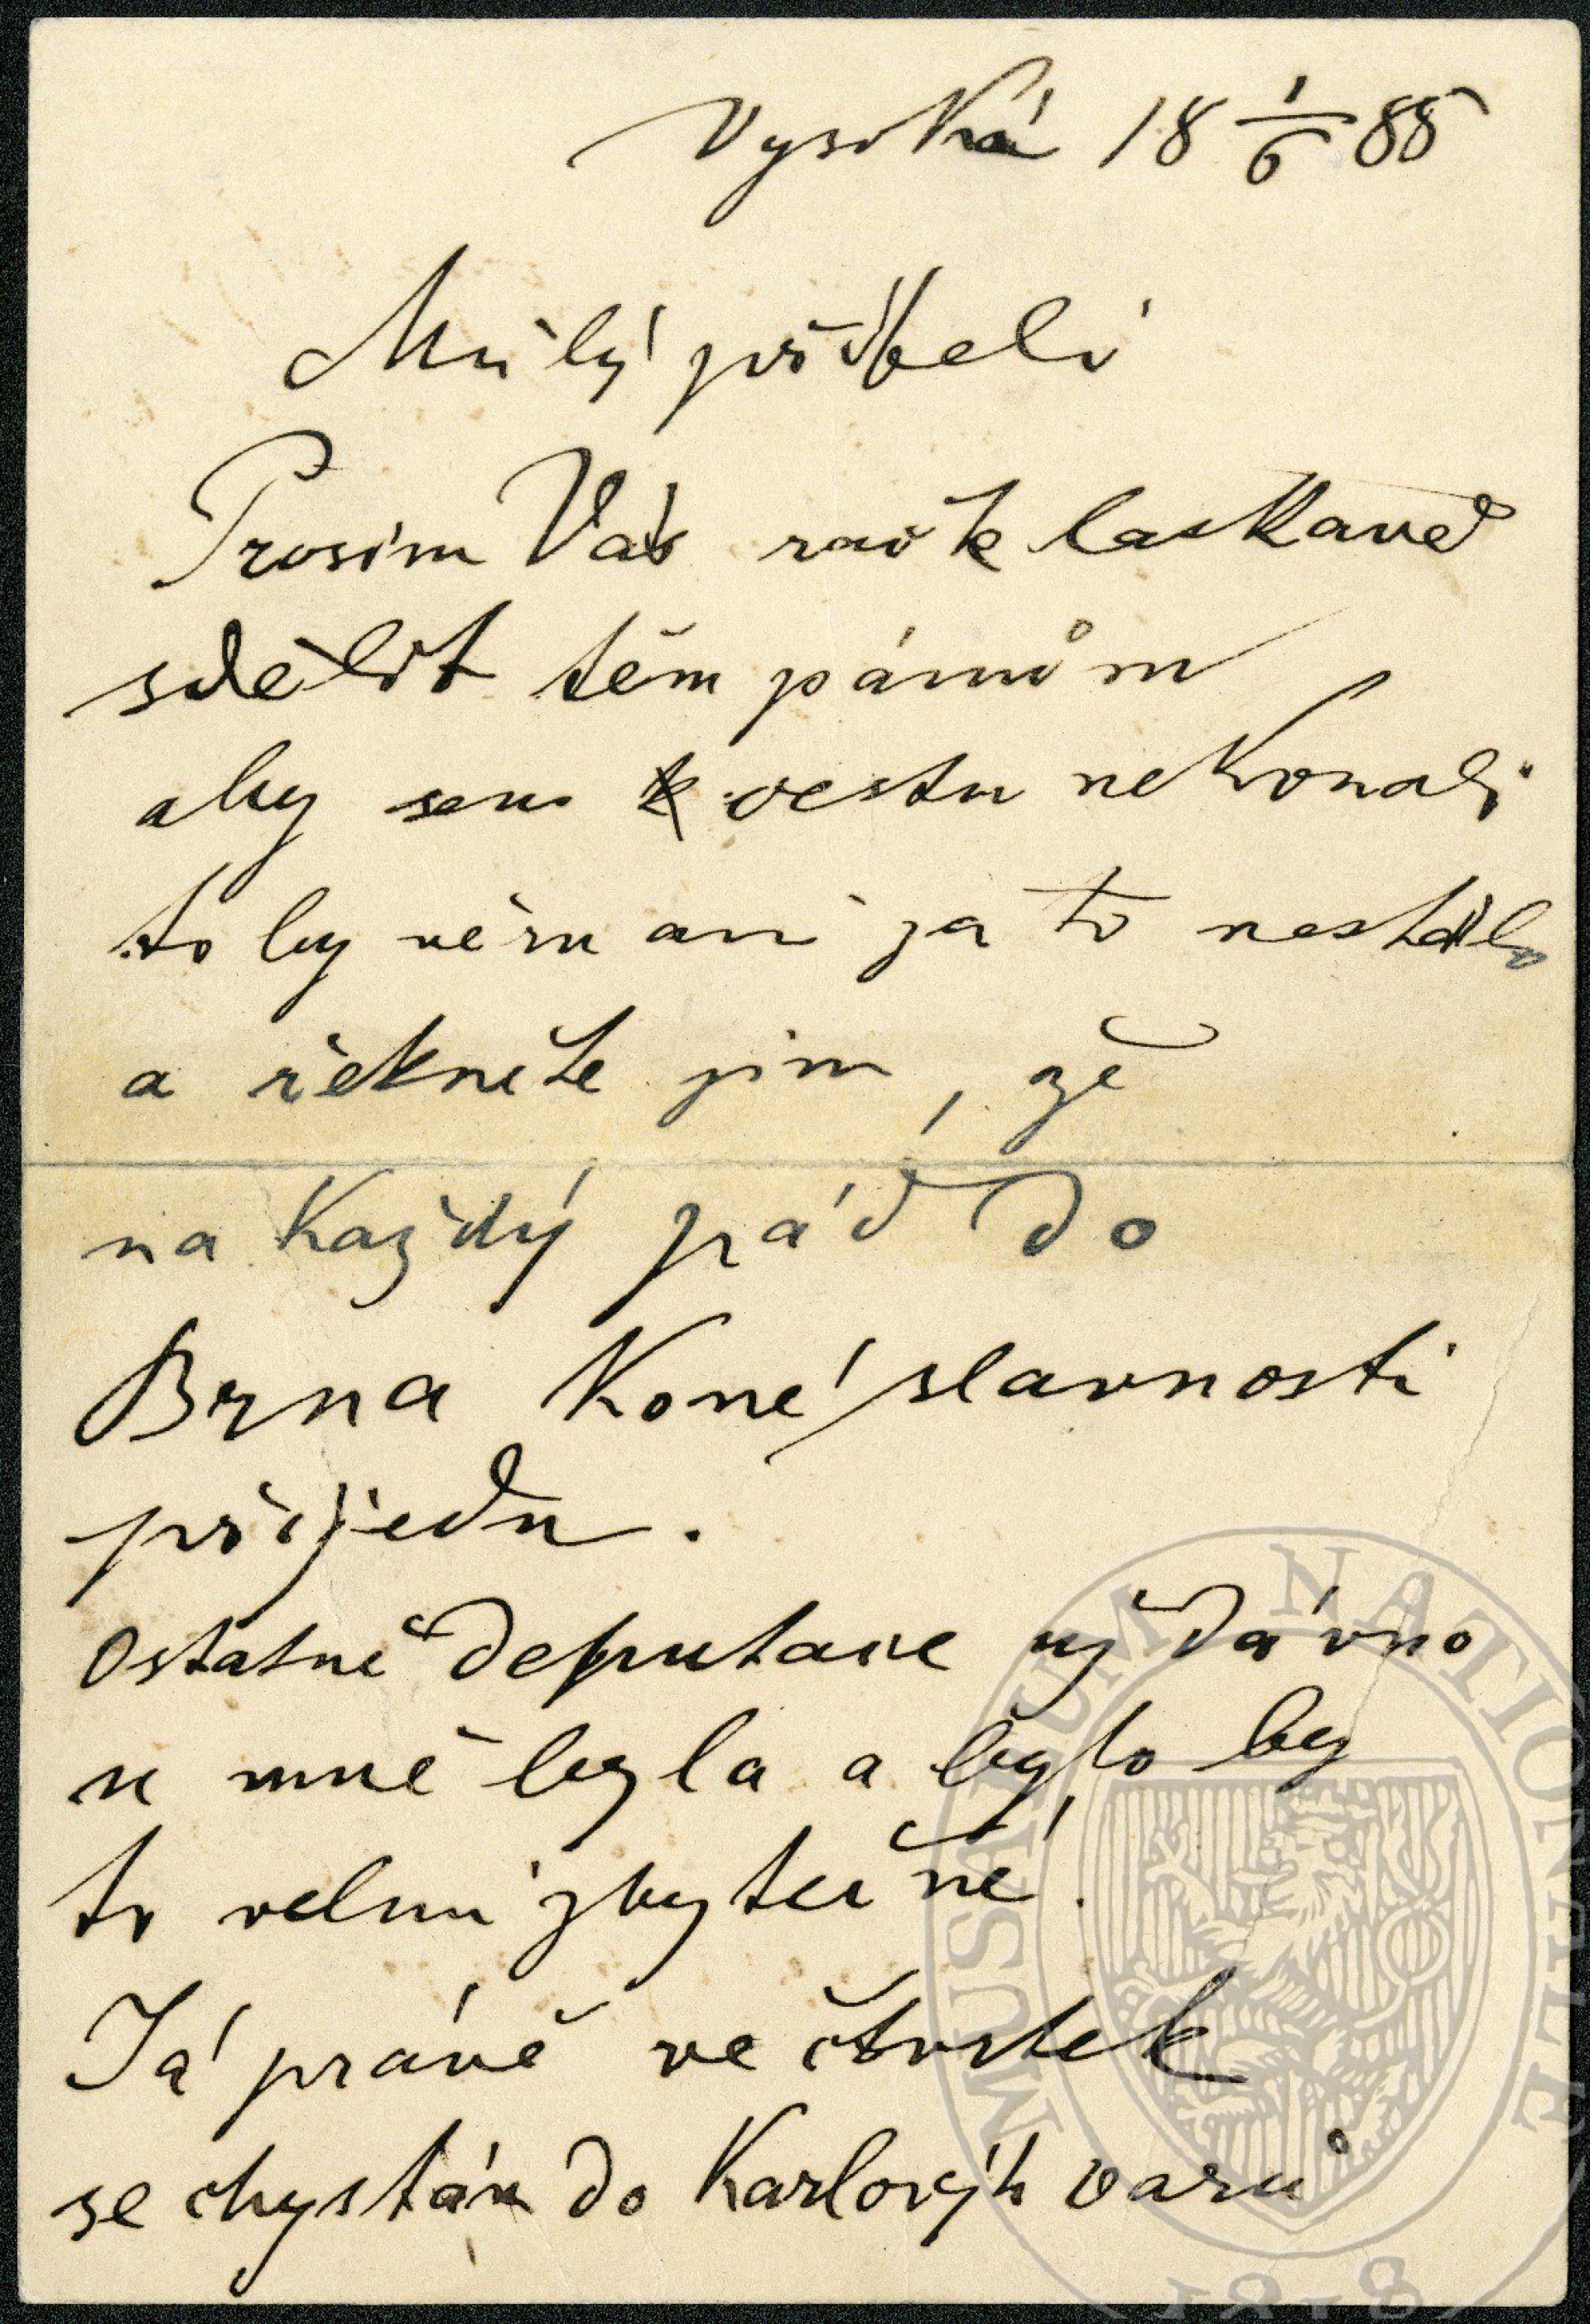 Vysoká 18 1/6 88
Milý příteli
Prosim Vás račte laskavě
sdělit těm pánům
aby sem cestu nekonali
to by věru ani za to nestálo
a řekněte jim, že
na každý pád do
Brna koné slavnosti
přijedu.
Ostatně deputace už dávno
u mně byla a bylo by
to velmi zbytečné.
Já právě ve čtvrtek
se chystám do Karlových varů
MUSAEUM NATIONALE
1818